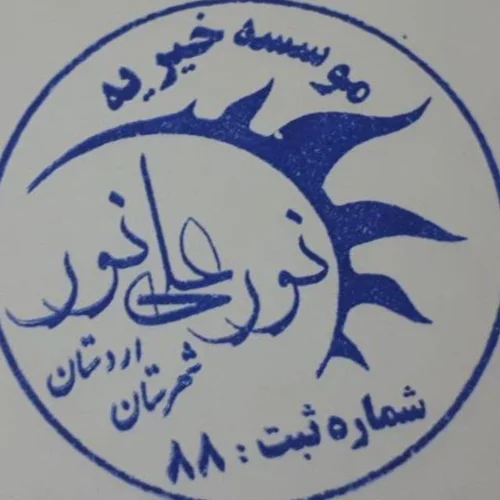 موسسه خیریه
نور علی نور
شهرستان اردستان
شماره ثبت : ۸۸